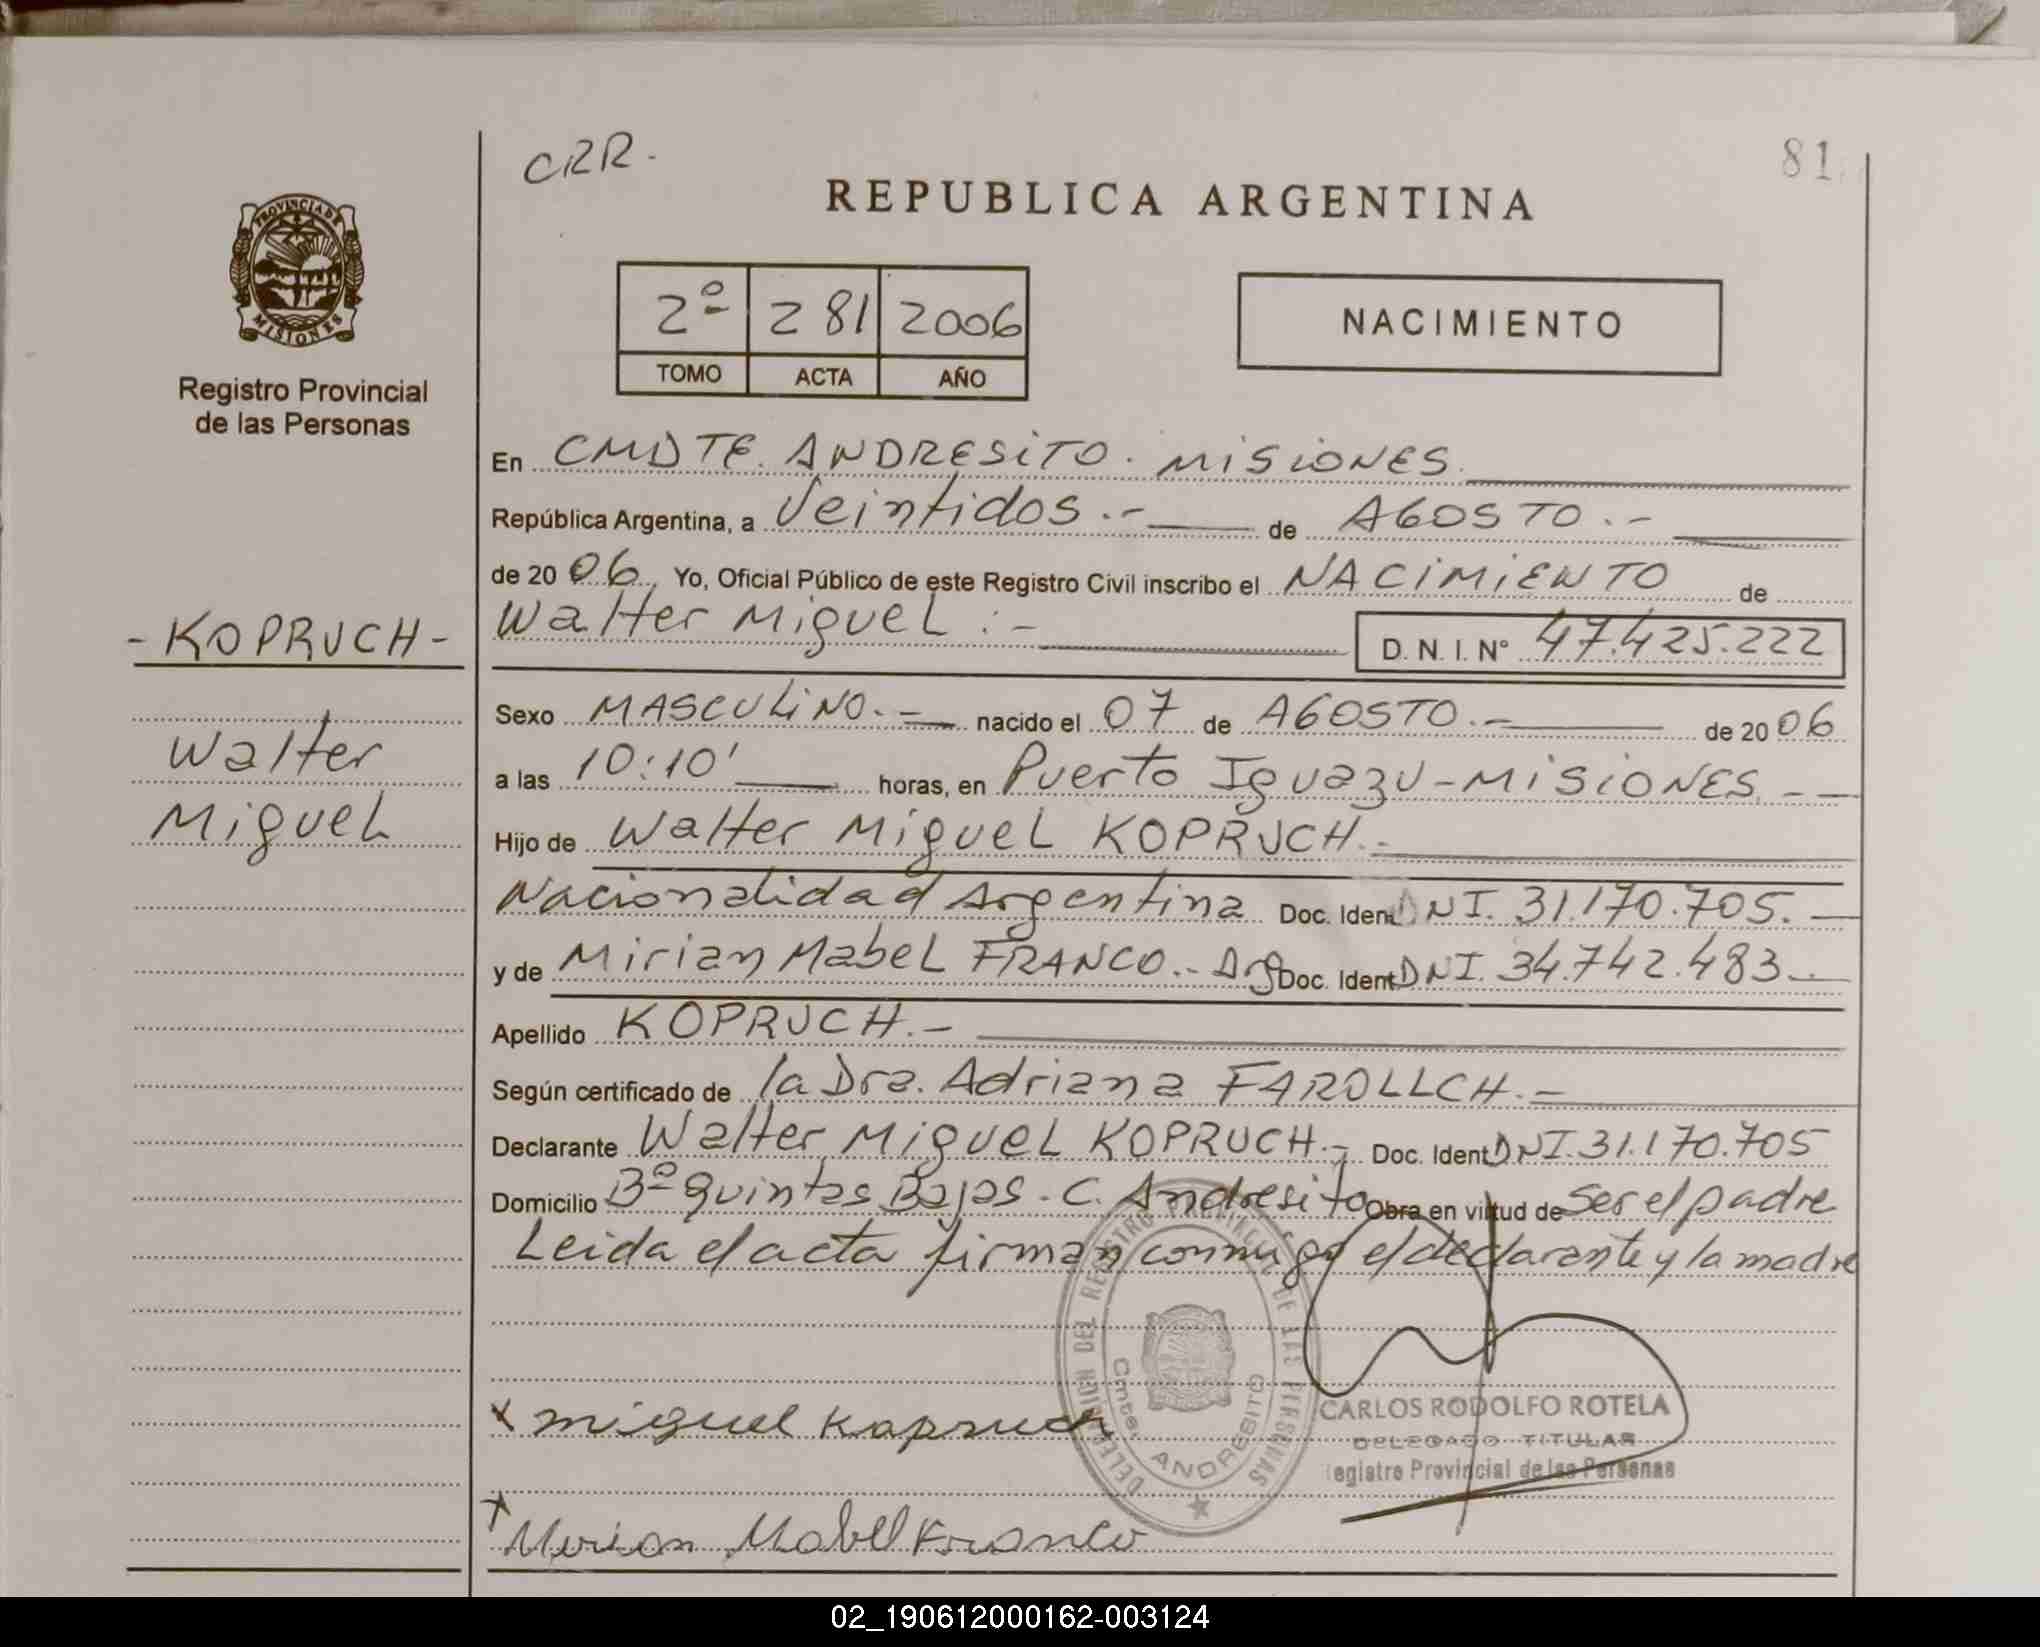 CRR.
81
REPUBLICA ARGENTINA
PROVINCIA DE
MISIONES
Registro Provincial
de las Personas
2º 281 2006
TOMO ACTA AÑO
NACIMIENTO
En CMDTE. ANDRESiTO. MiSiONES.
República Argentina, a Veintidos.- de AGOSTO.-
de 2006. Yo, Oficial Público de este Registro Civil inscribo el NACiMiENTO de
-KOPRUCH-
Walter Miguel.- D. N. I. Nº 47.425.222
Sexo MASCULiNO.- nacido el 07 de AGOSTO.- de 2006
Walter
a las 10:10' horas, en Puerto Iguazu-MiSiONES.--
Miguel
Hijo de Walter Miguel KOPRUCH.-
Nacionalidad Argentina Doc. Ident DNI. 31.170.705.-
y de Mirian Mabel FRANCO.- Arg Doc. Ident DNI. 34.742.483.-
Apellido KOPRUCH.-
Según certificado de la Dra. Adriana FAROLLCH.-
Declarante Walter Miguel KOPRUCH.- Doc. Ident DNI. 31.170.705
Domicilio Bº Quintas Bajas - C. Andresito Obra en virtud de Ser el padre
Leida el acta firman conmigo el declarante y la madre
DELEGACION DEL REGISTRO PROVINCIAL DE LAS PERSONAS
Cmte. ANDRESITO
x miguel Kopruch
CARLOS RODOLFO ROTELA
DELEGADO TITULAR
Registro Provincial de las Personas
x Mirian Mabel Franco
02_190612000162-003124